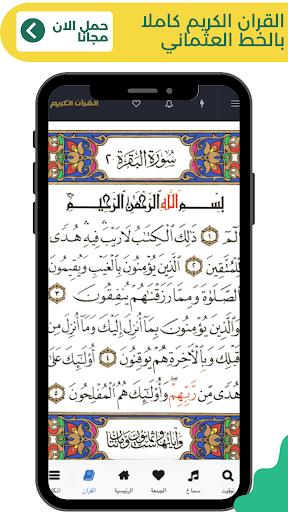 القران الكريم كاملا
بالخط العثماني
حمل الان
مجانا
القرآن الكريم
سورة البقرة ٢
بسم الله الرحمن الرحيم
الٓمٓ ١ ذَٰلِكَ ٱلْكِتَٰبُ لَا رَيْبَ فِيهِ هُدًى
لِّلْمُتَّقِينَ ٢ ٱلَّذِينَ يُؤْمِنُونَ بِٱلْغَيْبِ وَيُقِيمُونَ
ٱلصَّلَوٰةَ وَمِمَّا رَزَقْنَٰهُمْ يُنفِقُونَ ٣
وَٱلَّذِينَ يُؤْمِنُونَ بِمَآ أُنزِلَ إِلَيْكَ وَمَآ أُنزِلَ مِن
قَبْلِكَ وَبِٱلْءَاخِرَةِ هُمْ يُوقِنُونَ ٤ أُو۟لَٰٓئِكَ عَلَىٰ
هُدًى مِّن رَّبِّهِمْ وَأُو۟لَٰٓئِكَ هُمُ ٱلْمُفْلِحُونَ ٥
توقيت
سماع
الجمعة
الرئيسية
القران